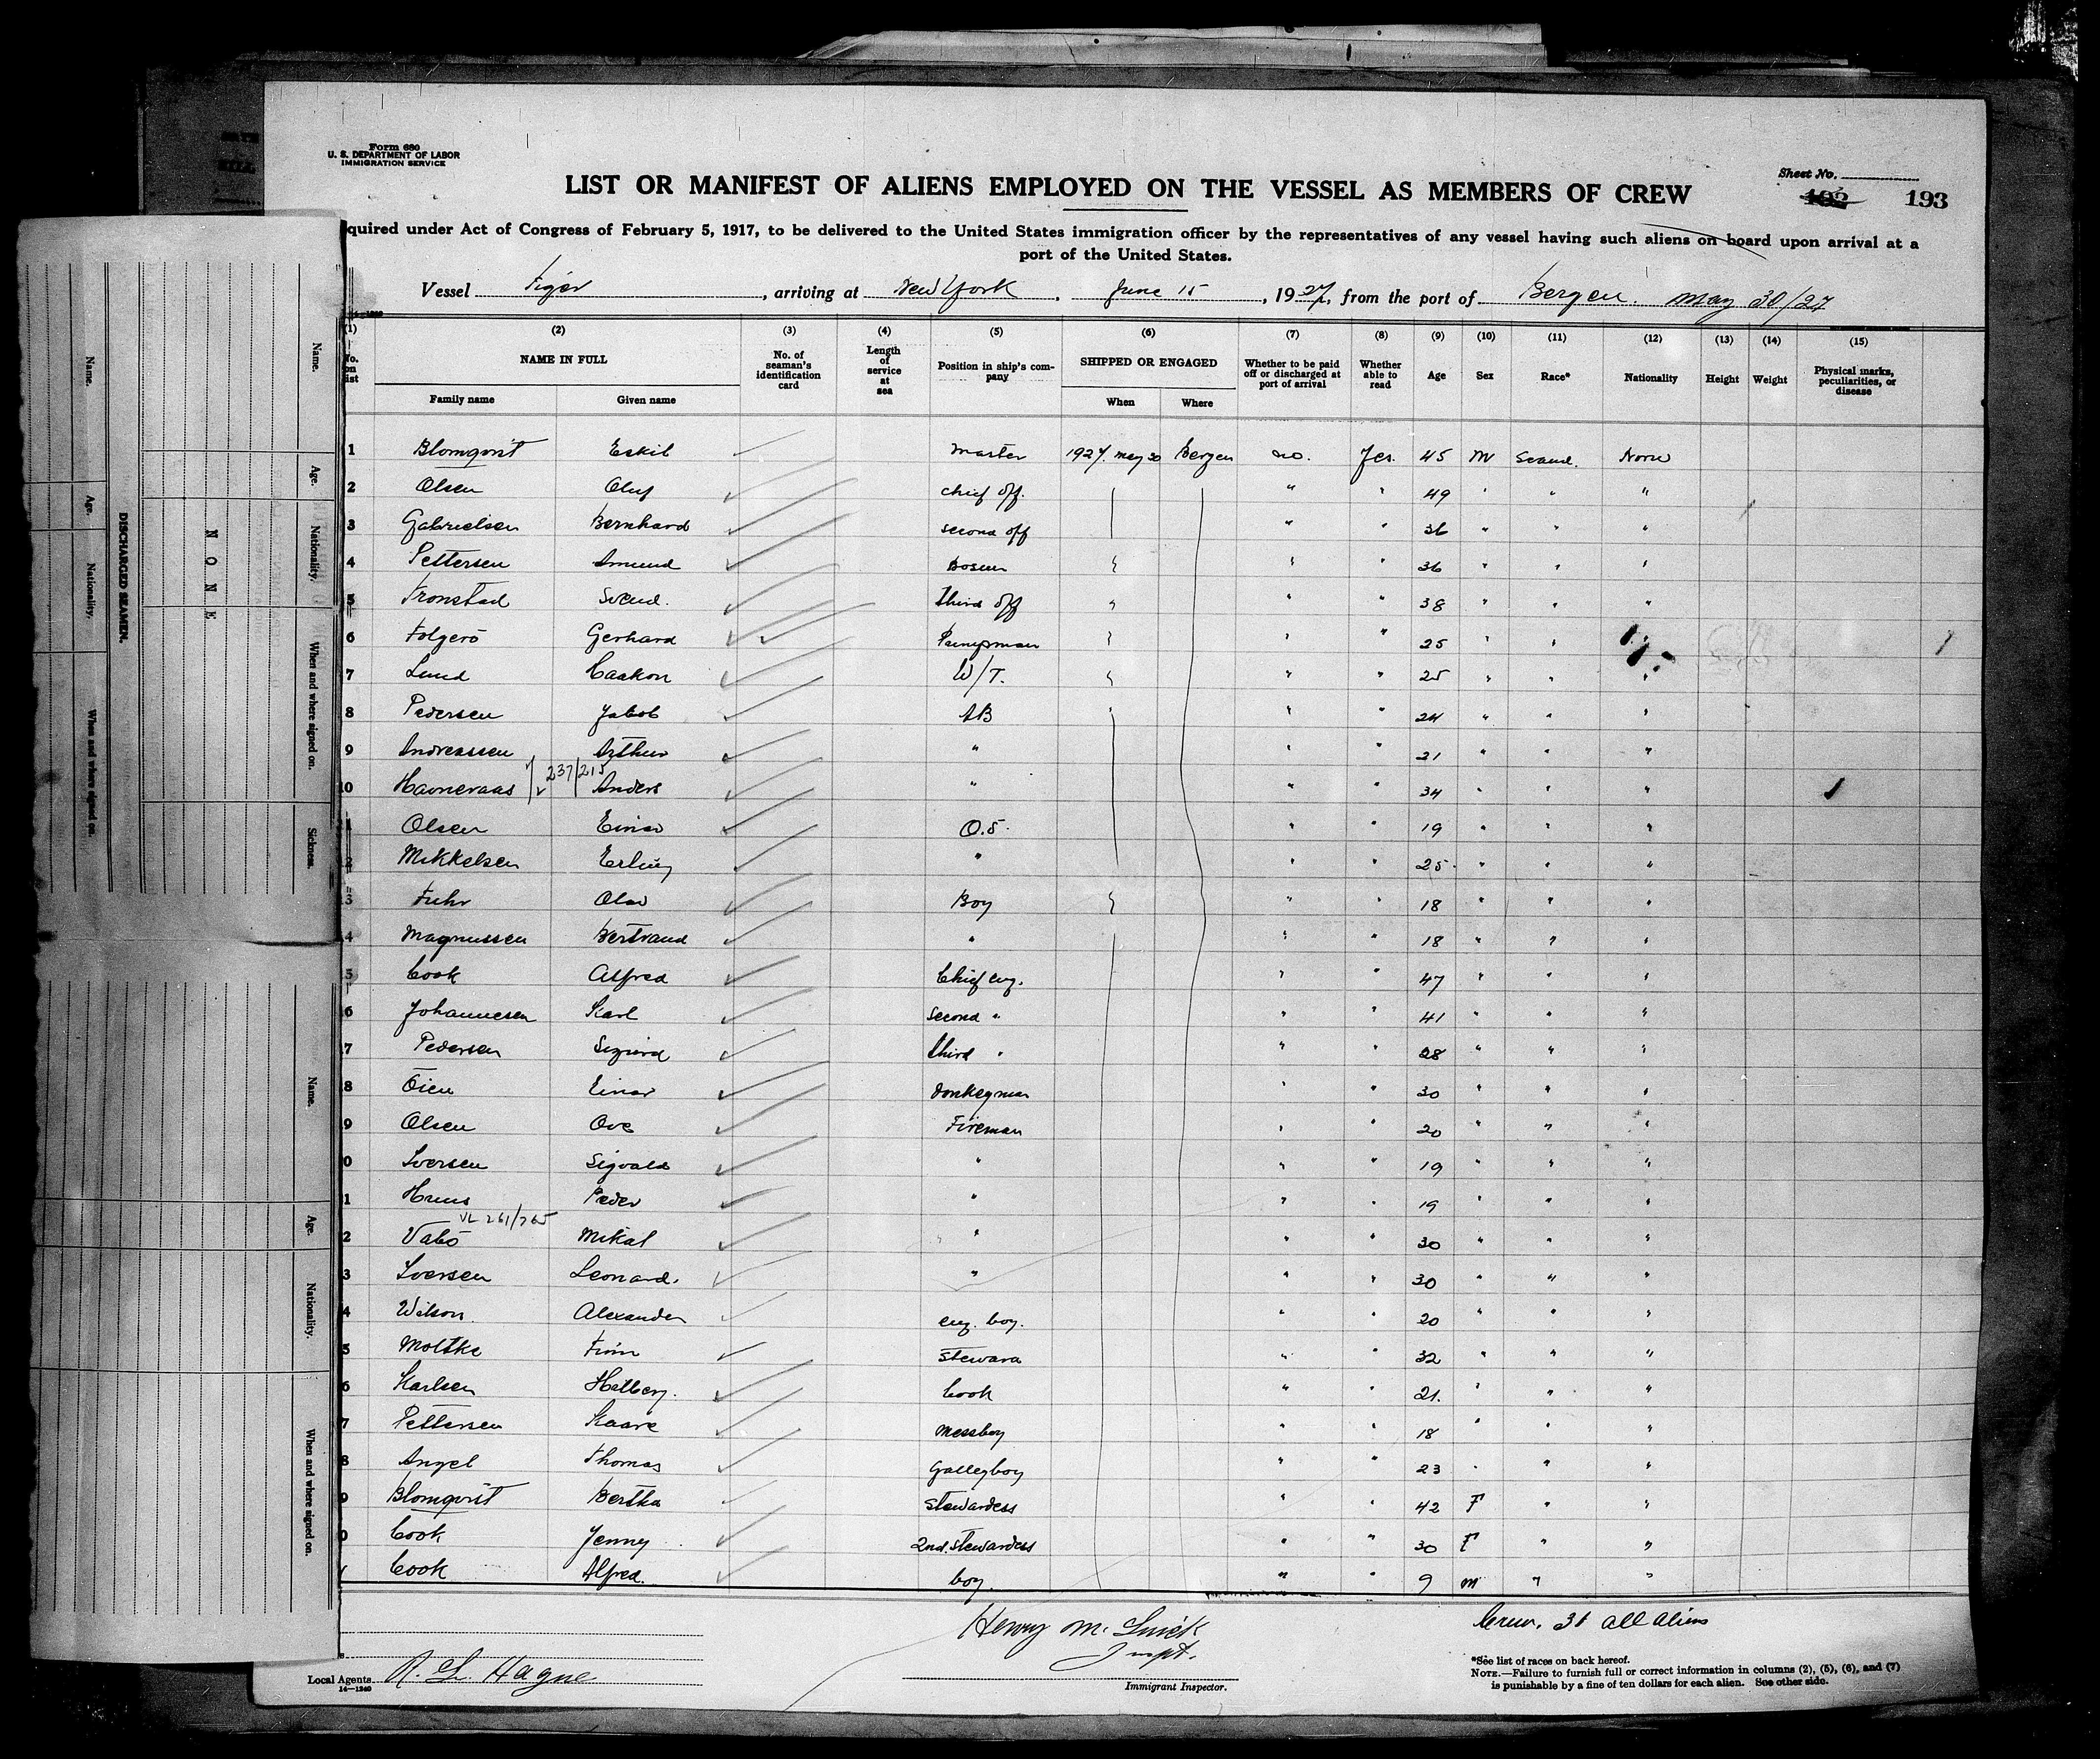 Form 680
U. S. DEPARTMENT OF LABOR
IMMIGRATION SERVICE
Sheet No.
192 193
LIST OR MANIFEST OF ALIENS EMPLOYED ON THE VESSEL AS MEMBERS OF CREW
quired under Act of Congress of February 5, 1917, to be delivered to the United States immigration officer by the representatives of any vessel having such aliens on board upon arrival at a
port of the United States.
Vessel Tiger, arriving at New York, June 15, 1927, from the port of Bergen. May 30/27
(1) (2) (3) (4) (5) (6) (7) (8) (9) (10) (11) (12) (13) (14) (15)
No. on list NAME IN FULL No. of seaman's identification card Length of service at sea Position in ship's company SHIPPED OR ENGAGED Whether to be paid off or discharged at port of arrival Whether able to read Age Sex Race* Nationality Height Weight Physical marks, peculiarities, or disease
Family name Given name When Where
1 Blomqvist Eskil Master 1927. May 30 Bergen no. Yes. 45 M Scand. Norw
2 Olsen Oluf chief off. " " 49 " " "
3 Gabrielsen Bernhard second off " " 36 " " "
4 Pettersen Amund Bosun " " 36 " " "
5 Tronstad Svend. third off " " 38 " " "
6 Folgerö Gerhard Pumpman " " 25 " " "
7 Lund Haakon W/T. " " 25 " " "
8 Pedersen Jakob AB " " 24 " " "
9 Andreassen Arthur " " " 21 " " "
10 Havneraas 237/215 Anders " " " 34 " " "
1 Olsen Einar O.S. " " 19 " " "
2 Mikkelsen Erling " " " 25 " " "
3 Fuhr Olav Boy " " 18 " " "
4 Magnussen Bertrand " " " 18 " " "
5 Cook Alfred Chief eng. " " 47 " " "
6 Johannesen Karl second " " " 41 " " "
7 Pedersen Sigurd third " " " 28 " " "
8 Öien Einar Donkeyman " " 30 " " "
9 Olsen Ove Fireman " " 20 " " "
0 Iversen Sigvald " " " 19 " " "
1 Peder " " " 19 " " "
VL 261/265
2 Vabö Mikal " " " 30 " " "
3 Iversen Leonard. " " " 30 " " "
4 Wilson Alexander eng. boy. " " 20 " " "
5 Moltke Finn Steward " " 32 " " "
6 Karlsen Cook " " 21. " " "
7 Pettersen Kaare Messboy " " 18 " " "
8 Angel Thomas Galleyboy " " 23 " " "
9 Blomqvist Bertha Stewardess " " 42 F " "
0 Cook Jenny 2nd. Stewardess " " 30 F " "
Cook Alfred. boy. " " 9 m " "
Henry M.
Inspt.
Immigrant Inspector.
Crew. 31 all aliens
Local Agents
14—1240
*See list of races on back hereof.
NOTE.—Failure to furnish full or correct information in columns (2), (5), (6), and (7)
is punishable by a fine of ten dollars for each alien. See other side.
DISCHARGED SEAMEN.
Name. Age. Nationality. When and where signed on.
NONE
Name. Age. Nationality. When and where signed on. Sickness.
Name. Age. Nationality. When and where signed on.